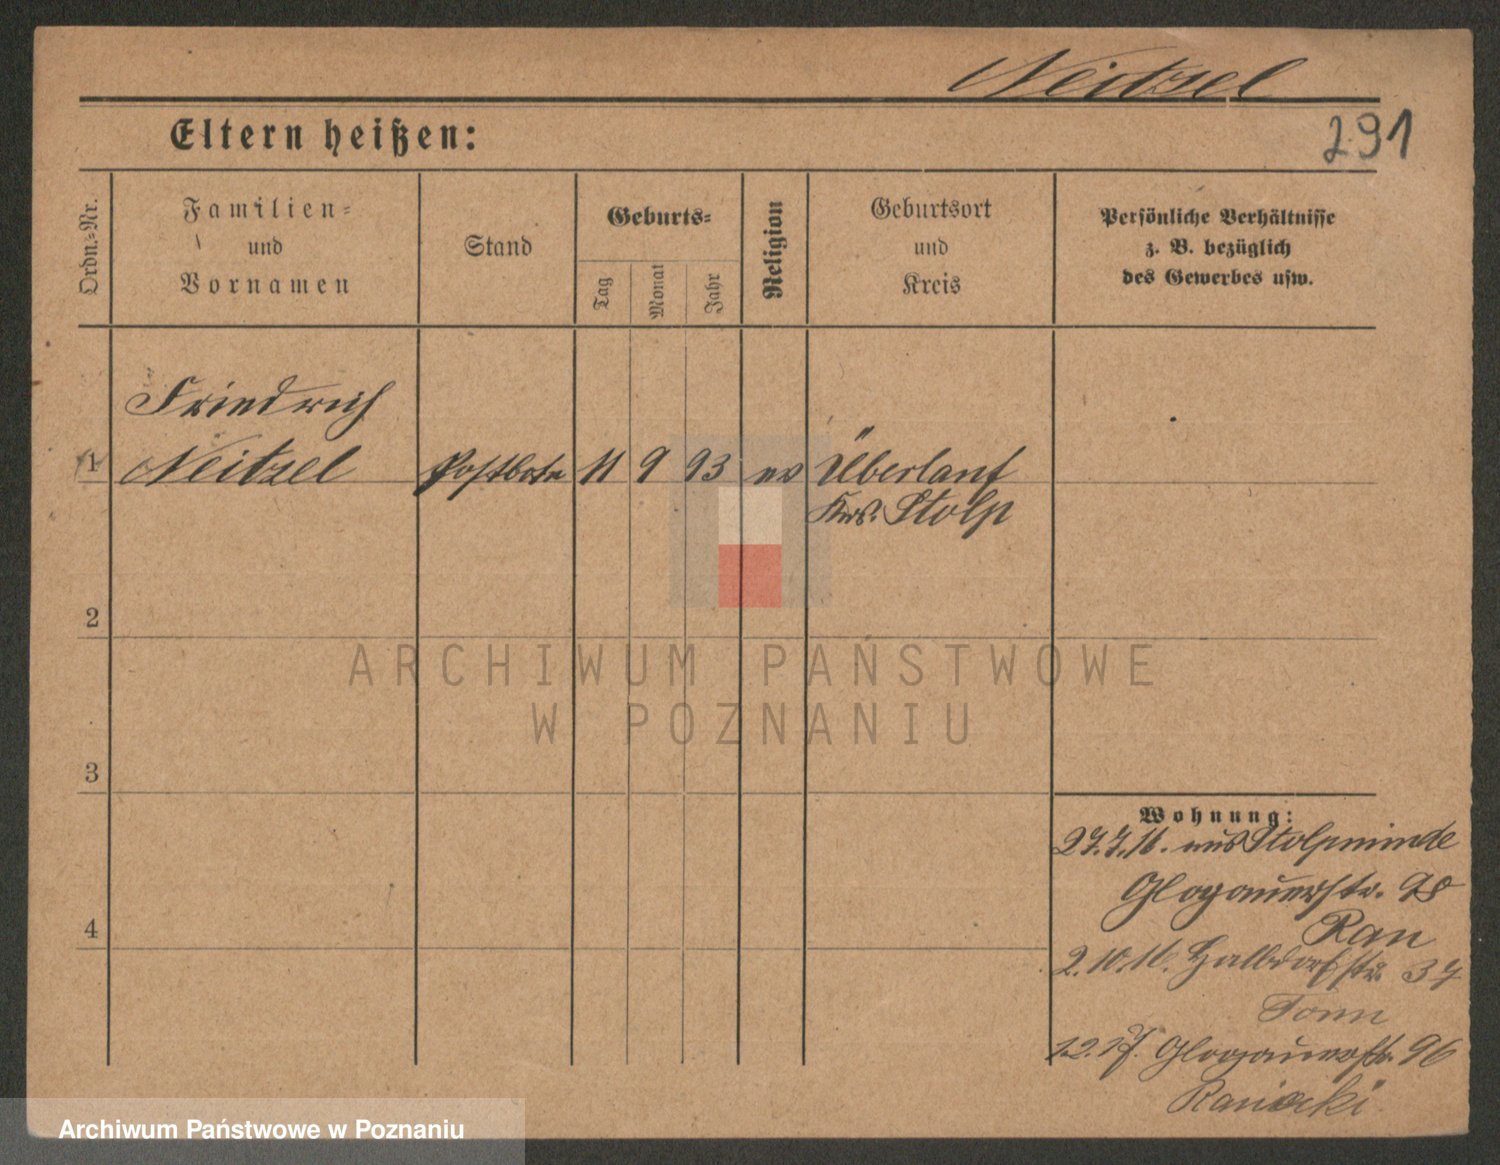 Neitzel
291
Eltern heißen:
Ordn.-Nr.
Familien-
und
Vornamen
Stand
Geburts-
Tag
Monat
Jahr
Religion
Geburtsort
und
Kreis
Persönliche Verhältnisse
z. B. bezüglich
des Gewerbes usw.
Friedrich
1 Neitzel Postbote 11 9 93 ev Überlauf
Krs. Stolp
2
ARCHIWUM PAŃSTWOWE
W POZNANIU
3
Wohnung:
27.7.16. aus Stolpmünde
Glogauerstr. 98
Ran
4
2.10.16. Halbdorfstr. 37
Tonn
Glogauerstr. 96
Archiwum Państwowe w Poznaniu